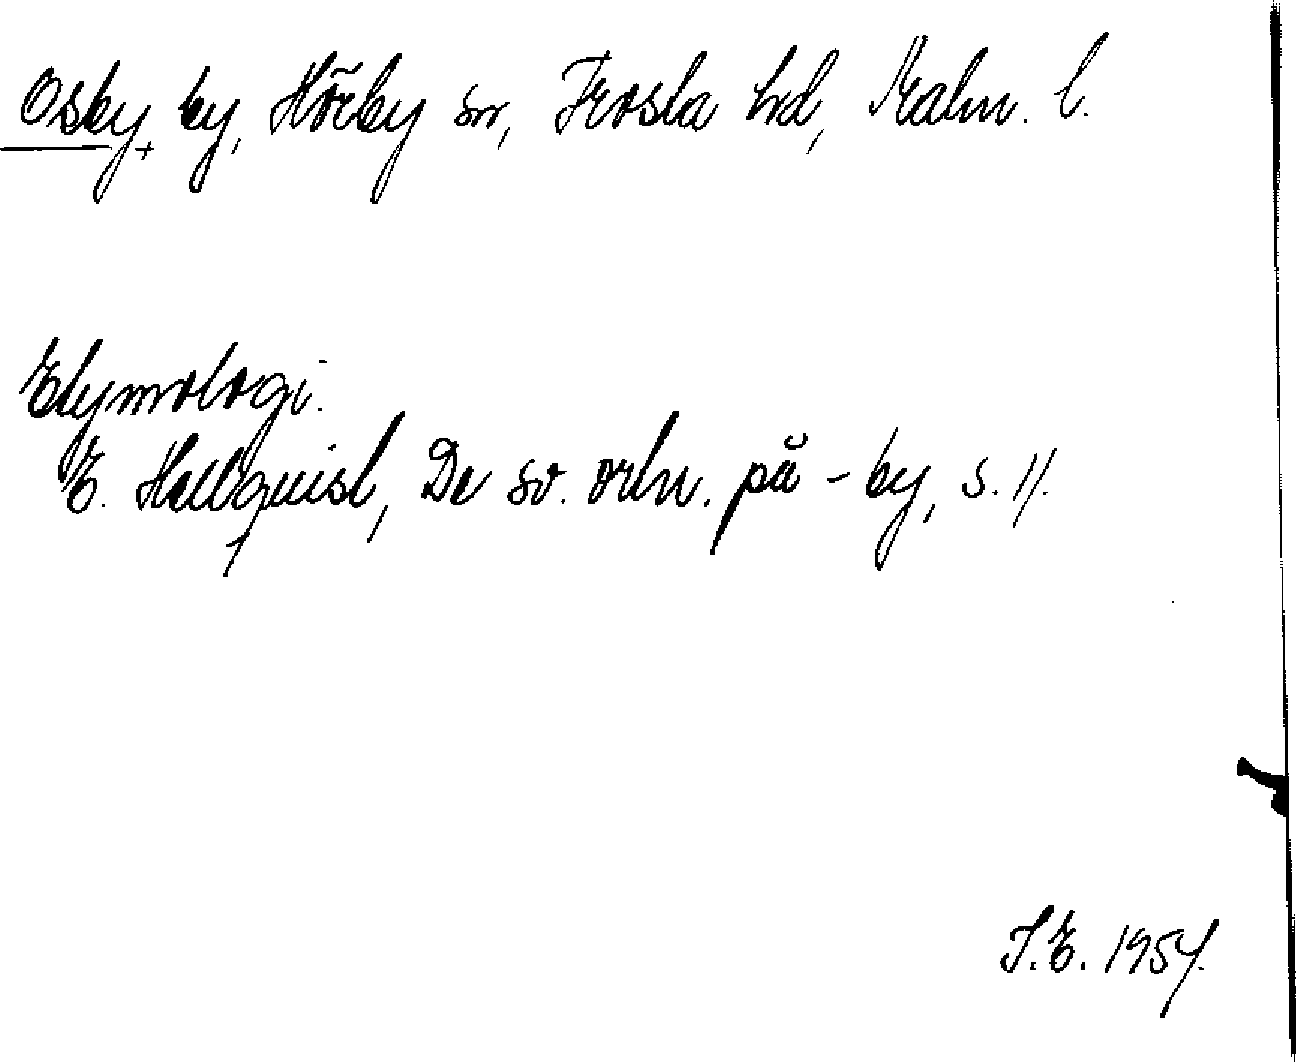 Osby, by, Hörby sn, Frosta hd, Malm. l.
Etymologi.
E. Hellquist, De sv. ortn. på -by, s. 11.
I.E. 1954.